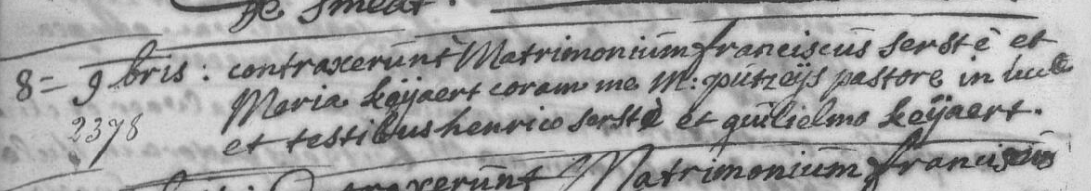 De Smedt.
8= 9bris: contraxerunt Matrimonium franciscus serstè et
Maria keÿaert coram me M: pútzeÿs pastore in
2378 et testibus henrico serstè et guilielmo keÿaert.
contraxerunt Matrimonium franciscus